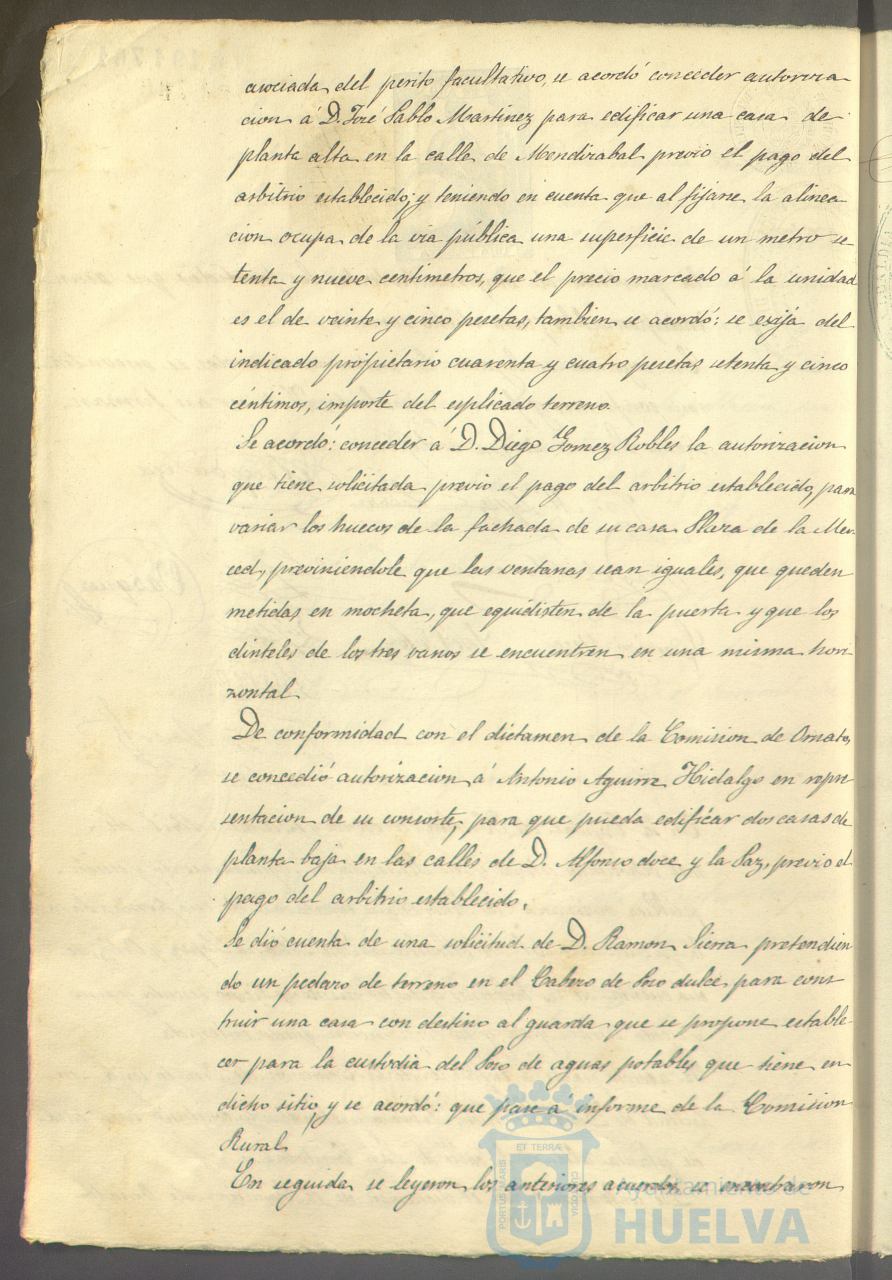 asociada del perito facultativo, se acordó conceder autoriza
cion á D. José Pablo Martinez para edificar una casa de
planta alta en la calle de Mendizabal previo el pago del
arbitrio establecido; y teniendo en cuenta que al fijarse la alinea
cion ocupa de la via pública una superficie de un metro se-
tenta y nueve centimetros, que el precio marcado á la unidad
es el de veinte y cinco pesetas, tambien se acordó: se exija del
indicado propietario cuarenta y cuatro pesetas setenta y cinco
céntimos, importe del esplicado terreno.
Se acordó: conceder á D. Diego Gomez Robles la autorizacion
que tiene solicitada previo el pago del arbitrio establecido, para
variar los huecos de la fachada de su casa Plaza de la Mer-
ced, previniendole que las ventanas sean iguales, que queden
metidas en mocheta, que equidisten de la puerta y que los
dinteles de los tres vanos se encuentren en una misma hori
zontal.
De conformidad con el dictamen de la Comision de Ornato,
se concedió autorizacion á Antonio Aguirre Hidalgo en repre
sentacion de su consorte, para que pueda edificar dos casas de
planta baja en las calles de D. Alfonso doce y la Paz, previo el
pago del arbitrio establecido.
Se dió cuenta de una solicitud de D. Ramon Sierra pretendien
do un pedazo de terreno en el Cabezo de Pozo dulce para cons
truir una casa con destino al guarda que se propone estable-
cer para la custodia del Pozo de aguas potables que tiene en
dicho sitio, y se acordó: que pase á informe de la Comision
Rural.
En seguida se leyeron los anteriores acuerdos, se encontraron
PORTUS MARIS ET TERRÆ CUSTODIA
Ayuntamiento de
HUELVA